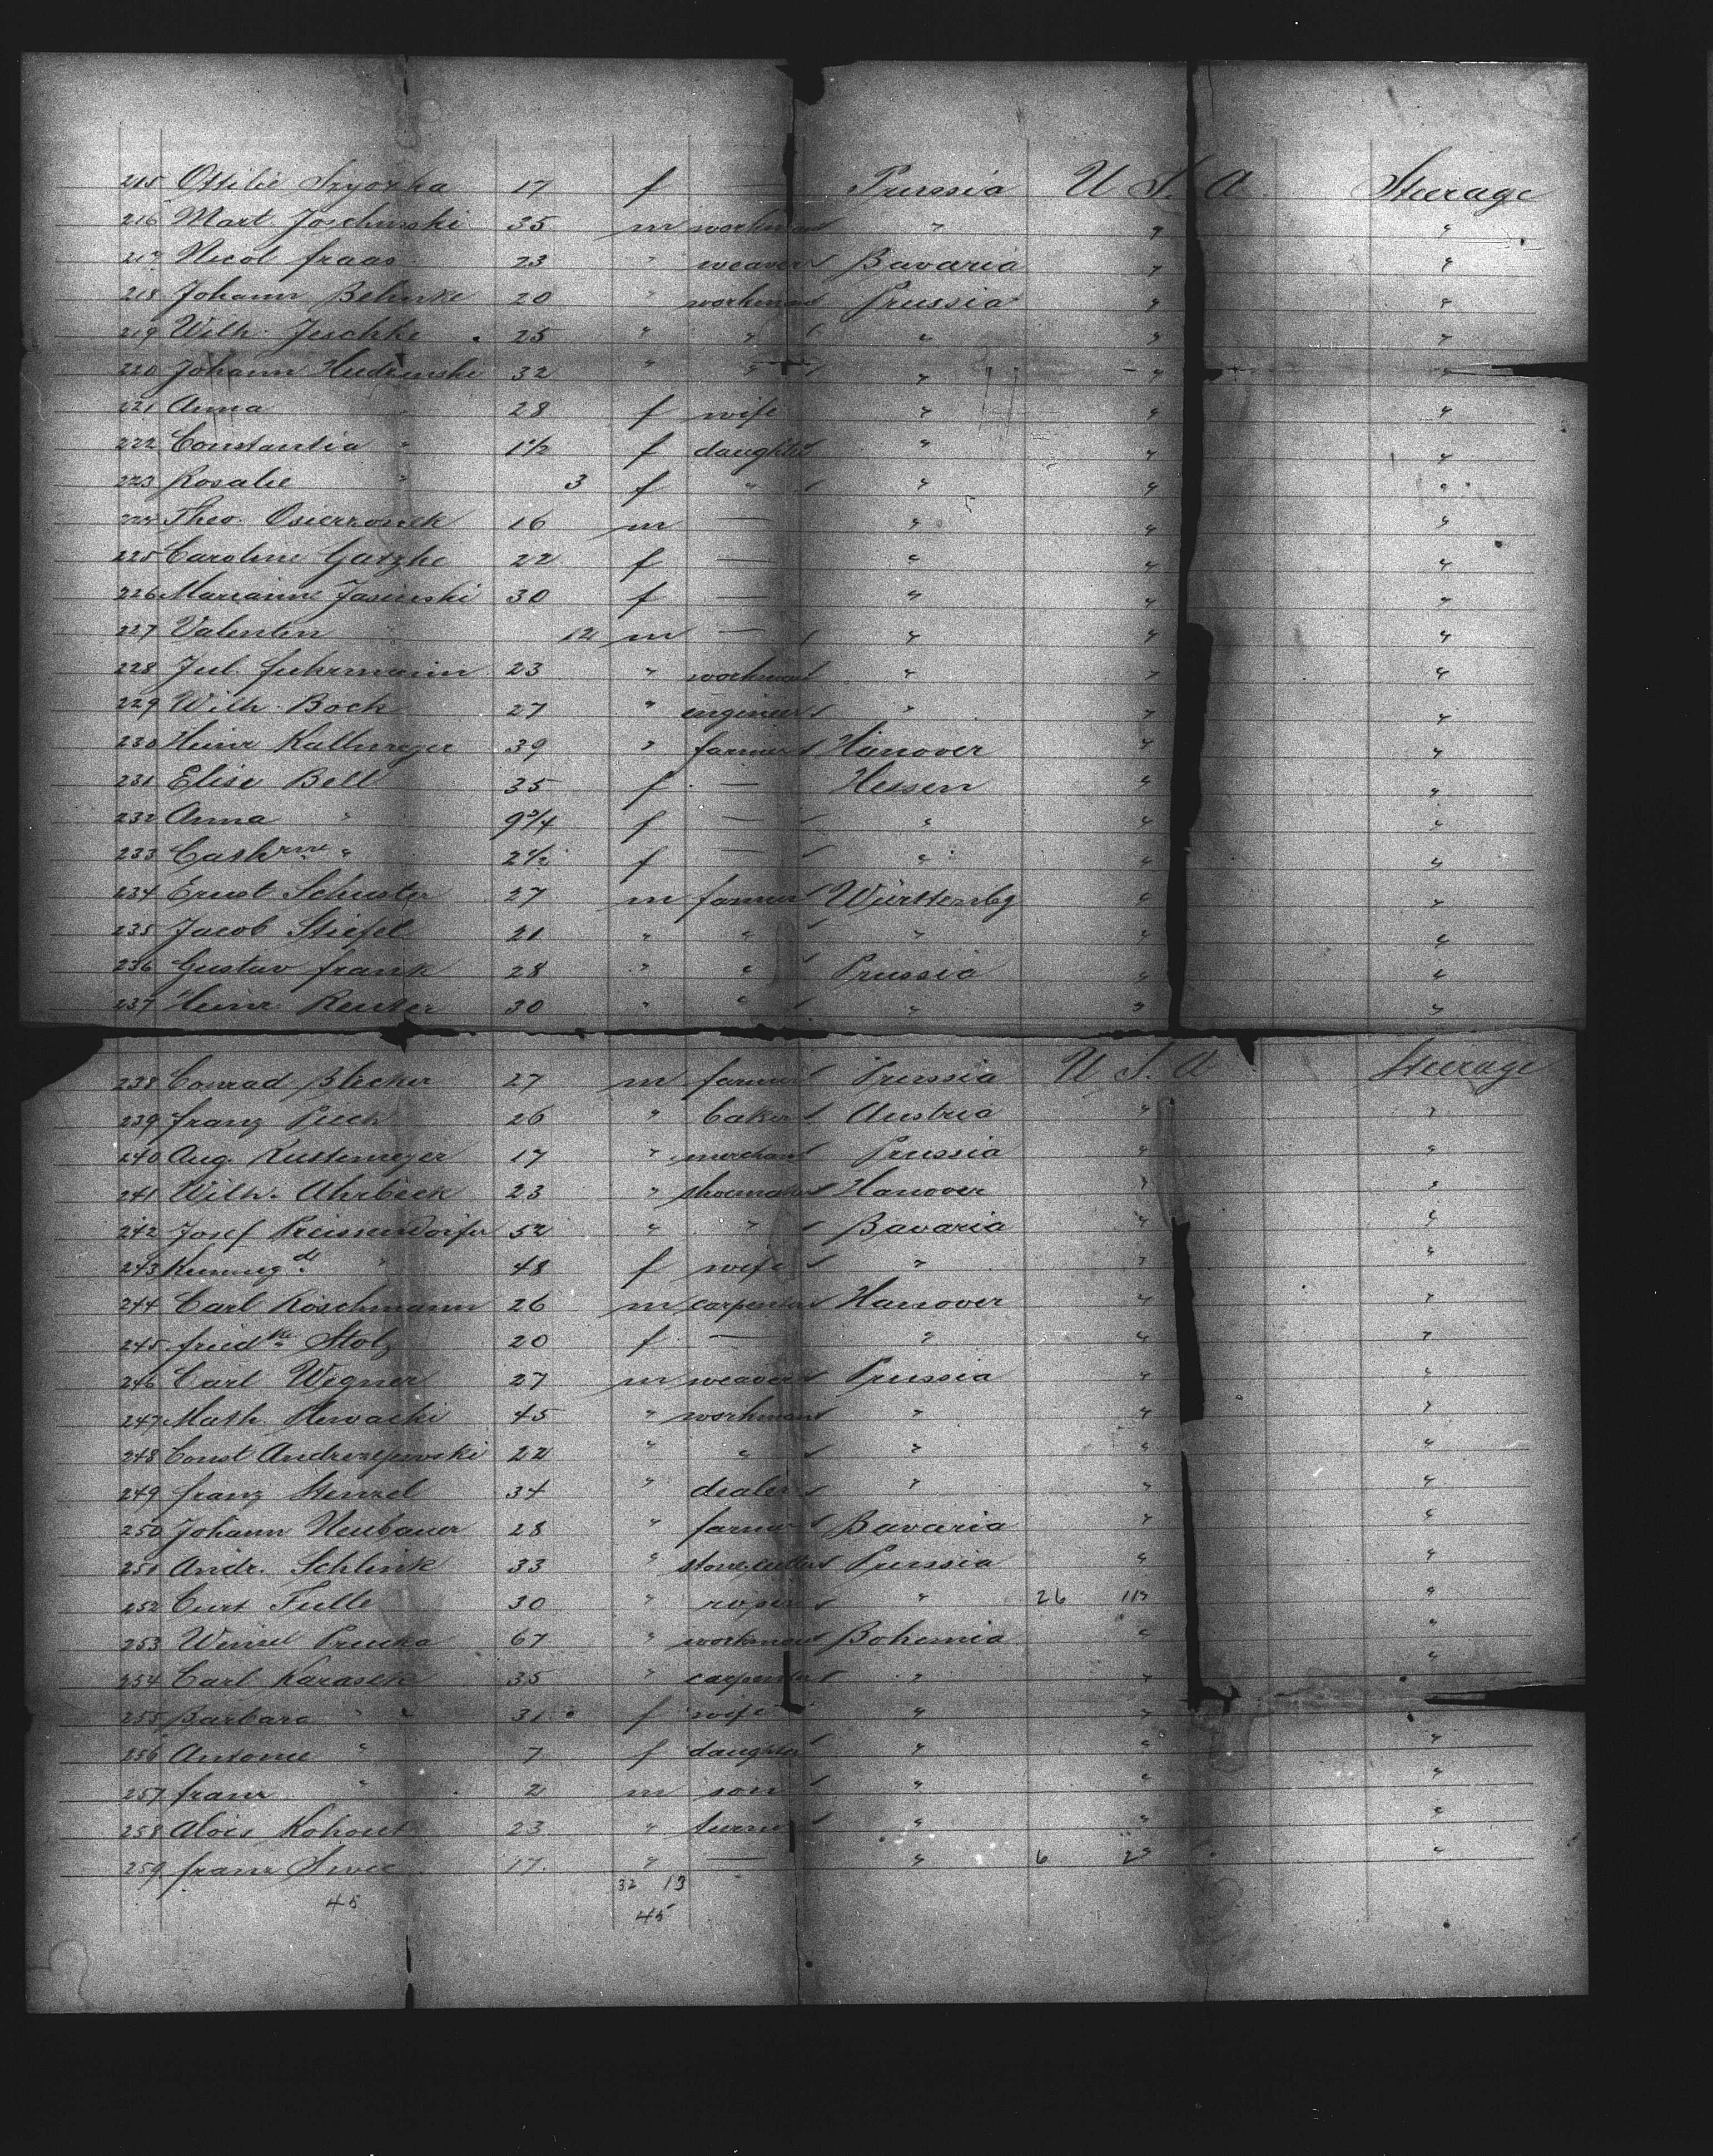 215 Ottilie Szyozka 17 f — Prussia U S. A. Steerage
216 Mart. Joschinski 35 m workman " " "
217 Nicol Fraas 23 " weaver Bavaria " "
218 Johann Behnke 20 " workman Prussia " "
219 Wilh. Jeschke 25 " " " " "
220 Johann Hudzinski 32 " " " " "
221 Anna " 28 f wife " " "
222 Constantia " 1 1/2 f daughter " " "
223 Rosalie " 3 f " " " "
224 Theo. 16 m — " " "
225 Caroline Gatzke 22 f — " " "
226 Marianne Jasinski 30 f — " " "
227 Valentin " 12 m — " " "
228 Jul. Fuhrmann 23 " workman " " "
229 Wilh. Bock 27 " engineer " " "
230 Heinr Kallmeyer 39 " farmer Hanover " "
231 Elise Bell 35 f — Hessen " "
232 Anna " 9 3/4 f — " " "
233 Cathrine " 2 1/2 f — " " "
234 Ernst Schuster 27 m farmer Württembg " "
235 Jacob Stiefel 21 " " " " "
236 Gustav Frank 28 " " Prussia " "
237 Heinr. Reuter 30 " " " " "
238 Conrad Blecher 27 m farmer Prussia U S. A Steerage
239 Franz Pech 26 " baker Austria " "
240 Aug. Kustemeyer 17 " merchant Prussia " "
241 Wilh. Uhrbeck 23 " shoemaker Hanover " "
242 Josef Preissendorfer 52 " " Bavaria " "
243 Kunnigde " 48 f wife " " "
244 Carl Röschmann 26 m carpenter Hanover " "
245 Friedke Stolz 20 f — " " "
246 Carl Wegner 27 m weaver Prussia " "
247 Math. 45 " workman " " "
248 Const Andrezejewski 22 " " " " "
249 Franz Stenzel 34 " dealer " " "
250 Johann Neubauer 28 " farmer Bavaria " "
251 Andr. Schlink 33 " stonecutter Prussia " "
252 Curt Tulle 30 " roper " 26 "
253 Wenzel Prucka 67 " workman Bohemia " "
254 Carl Karasek 35 " carpenter " " "
255 Barbara " 31 f wife " " "
256 Antonie " 7 f daughter " " "
257 Franz " 2 m son " " "
258 Alois Kohout 23 " turner " " "
259 Franz 17 " — " 6 "
32 13
45 45